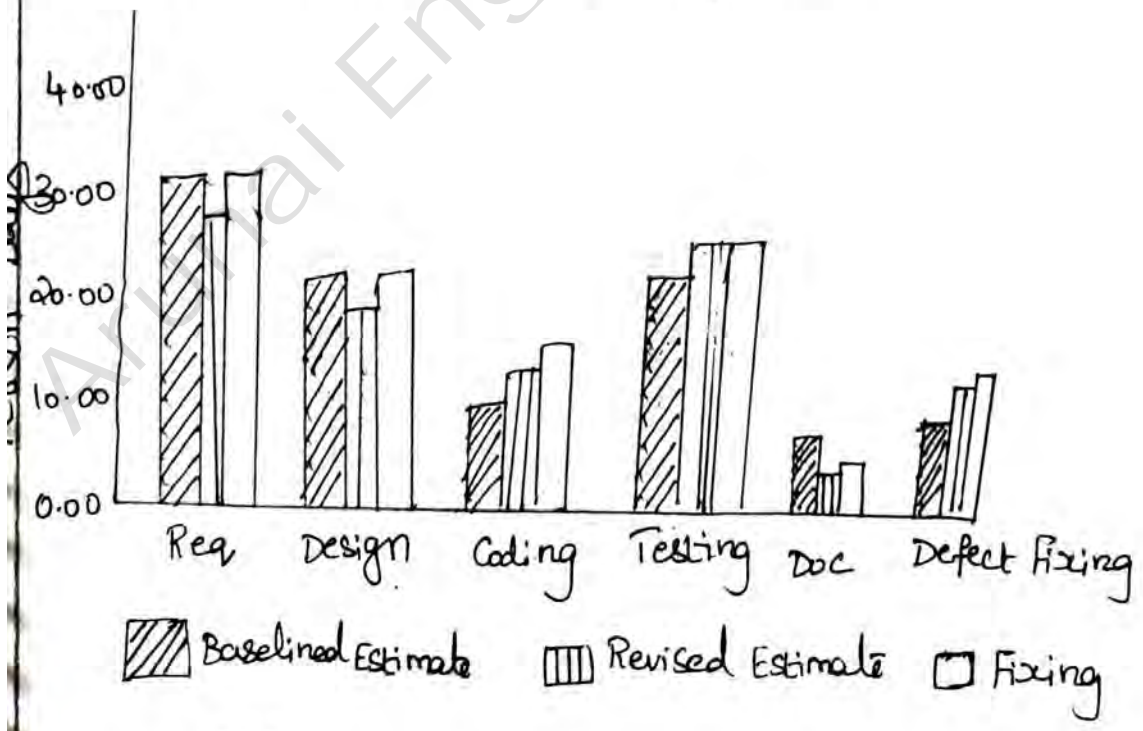 Arunai Eng
40.00
30.00
20.00
10.00
0.00
Req
Design
Coding
Testing
Doc
Defect Fixing
Baselined Estimate
Revised Estimate
Fixing